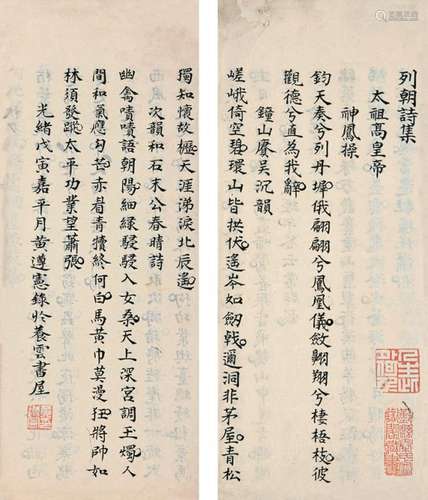 列朝詩集
太祖高皇帝
神鳳操
鈞天奏兮列丹墀俄翩翩兮鳳凰儀斂翺翔兮棲梧枝彼
觀德兮直為我辭
鐘山賡吳沉韻
嵯峨倚空碧環山皆拱伏遙岑如劒戟邇洞非茅屋青松
獨知懷故櫪天涯涕淚北辰遙
次韻和石末公春晴詩
幽禽嘖嘖語朝陽細綠駸駸入女桑天上深宮調玉燭人
間和氣應勾芒赤眉青犢終何白馬黃巾莫漫狂將帥如
林須發蹤太平功業望蕭張
光緒戊寅嘉平月黃遵憲錄於養雲書屋